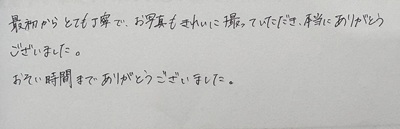 最初からとても丁寧で、お写真もきれいに撮っていただき、本当にありがとう
ございました。
おそい時間までありがとうございました。